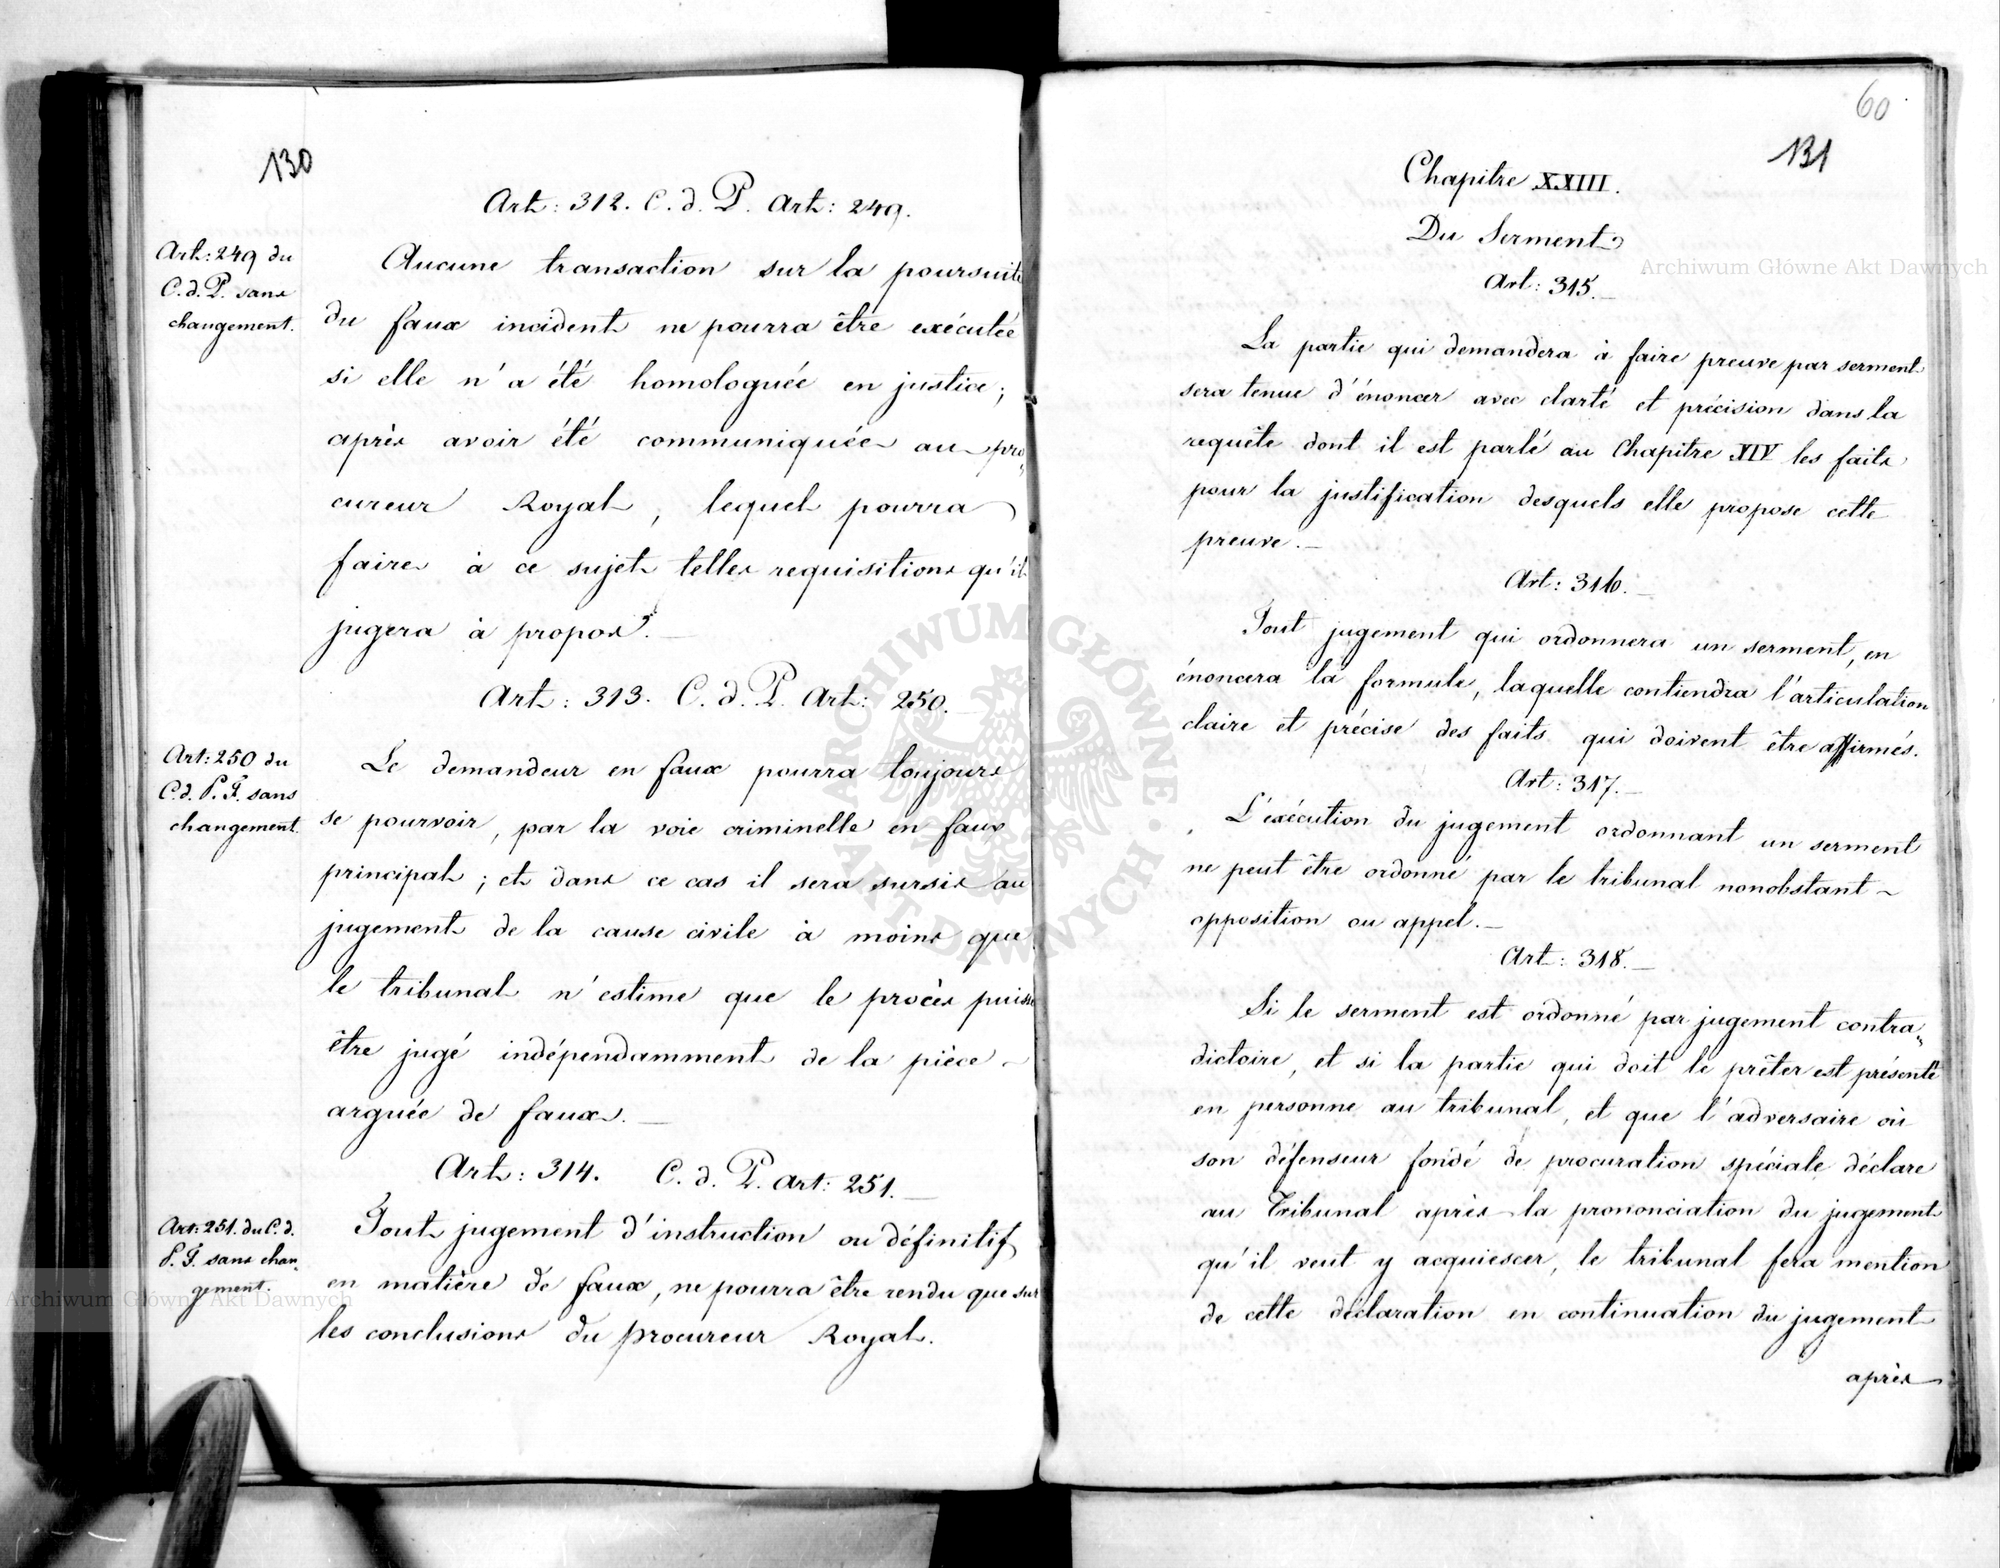 130
Art: 312. C. d. P. Art: 249.
Art: 249 du
C. d. P. sans
changement.
Aucune transaction sur la poursuite
du faux incident ne pourra être exécutée
si elle n'a été homologuée en justice;
après avoir été communiquée au pro„
cureur Royal, lequel pourra
faire à ce sujet telles requisitions qu'il
jugera à propos.
Art: 313. C. d. P. Art: 250.
Art: 250 du
C. d. P. F. sans
changement.
Le demandeur en faux pourra toujours
se pourvoir, par la voie criminelle en faux
principal; et dans ce cas il sera sursis au
jugement de la cause civile à moins que
le tribunal n'estime que le procès puisse
être jugé indépendamment de la pièce
arguée de faux.
Art: 314. C. d. P. art: 251.
Art: 251. du C. d.
P. F. sans chan„
gement.
Tout jugement d'instruction ou définitif
en matière de faux, ne pourra être rendu que sur
les conclusions du procureur Royal.
60
131
Chapitre XXIII.
Du Serment
Art: 315.
La partie qui demandera à faire preuve par serment
sera tenue d'énoncer avec clarté et précision dans la
requête dont il est parlé au Chapitre XIV les faits
pour la justification desquels elle propose cette
preuve.
Art: 316.
Tout jugement qui ordonnera un serment, en
énoncera la formule, laquelle contiendra l'articulation
claire et précise des faits qui doivent être affirmés.
Art: 317.
L'exécution du jugement ordonnant un serment
ne peut être ordonné par le tribunal nonobstant
opposition ou appel.
Art: 318.
Si le serment est ordonné par jugement contra„
dictoire, et si la partie qui doit le prêter est présenté
en personne au tribunal, et que l'adversaire où
son défenseur fondé de procuration spéciale déclare
au Tribunal après la prononciation du jugement
qu'il veut y acquiescer, le tribunal fera mention
de cette déclaration en continuation du jugement
après
Archiwum Główne Akt Dawnych
Archiwum Główne Akt Dawnych
ARCHIWUM GŁÓWNE AKT DAWNYCH